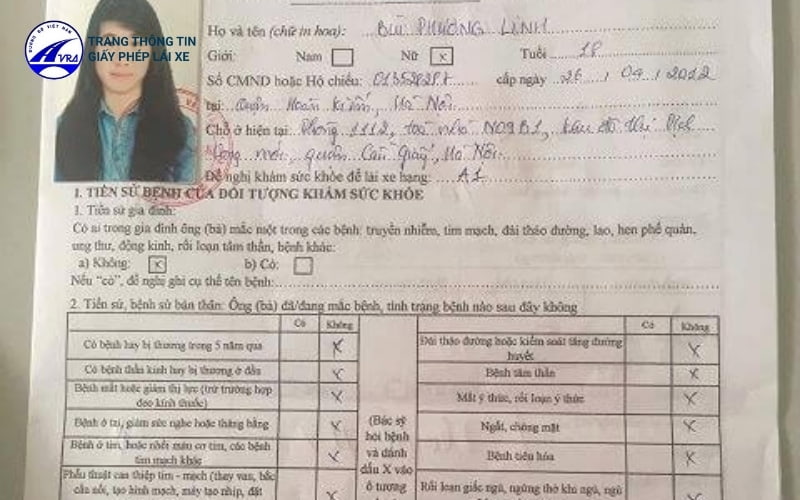 ĐƯỜNG BỘ VIỆT NAM
VRA
TRANG THÔNG TIN
GIẤY PHÉP LÁI XE
Họ và tên (chữ in hoa): BÙI PHƯƠNG LINH
Giới: Nam Nữ x Tuổi 18
Số CMND hoặc Hộ chiếu: cấp ngày 26 / 04 / 2012
tại: Quận Hoàn Kiếm, Hà Nội
Chỗ ở hiện tại: Phòng 1112, toà nhà N09B1, khu đô thị Dịch
Vọng mới, quận Cầu Giấy, Hà Nội
Đề nghị khám sức khỏe để lái xe hạng: A1
I. TIỀN SỬ BỆNH CỦA ĐỐI TƯỢNG KHÁM SỨC KHỎE
1. Tiền sử gia đình:
Có ai trong gia đình ông (bà) mắc một trong các bệnh: truyền nhiễm, tim mạch, đái tháo đường, lao, hen phế quản,
ung thư, động kinh, rối loạn tâm thần, bệnh khác:
a) Không: x b) Có:
Nếu “có”, đề nghị ghi cụ thể tên bệnh:
2. Tiền sử, bệnh sử bản thân: Ông (bà) đã/đang mắc bệnh, tình trạng bệnh nào sau đây không
Có Không
Có bệnh hay bị thương trong 5 năm qua x
Có bệnh thần kinh hay bị thương ở đầu x
Bệnh mắt hoặc giảm thị lực (trừ trường hợp
đeo kính thuốc) x
Bệnh ở tai, giảm sức nghe hoặc thăng bằng x
Bệnh ở tim, hoặc nhồi máu cơ tim, các bệnh
tim mạch khác x
Phẫu thuật can thiệp tim - mạch (thay van, bắc
cầu nối, tạo hình mạch, máy tạo nhịp, đặt x
(Bác sỹ
hỏi bệnh
và đánh
dấu X vào
ô tương
Có Không
Đái tháo đường hoặc kiểm soát tăng đường
huyết x
Bệnh tâm thần x
Mất ý thức, rối loạn ý thức x
Ngất, chóng mặt x
Bệnh tiêu hóa x
Rối loạn giấc ngủ, ngừng thở khi ngủ, ngủ x